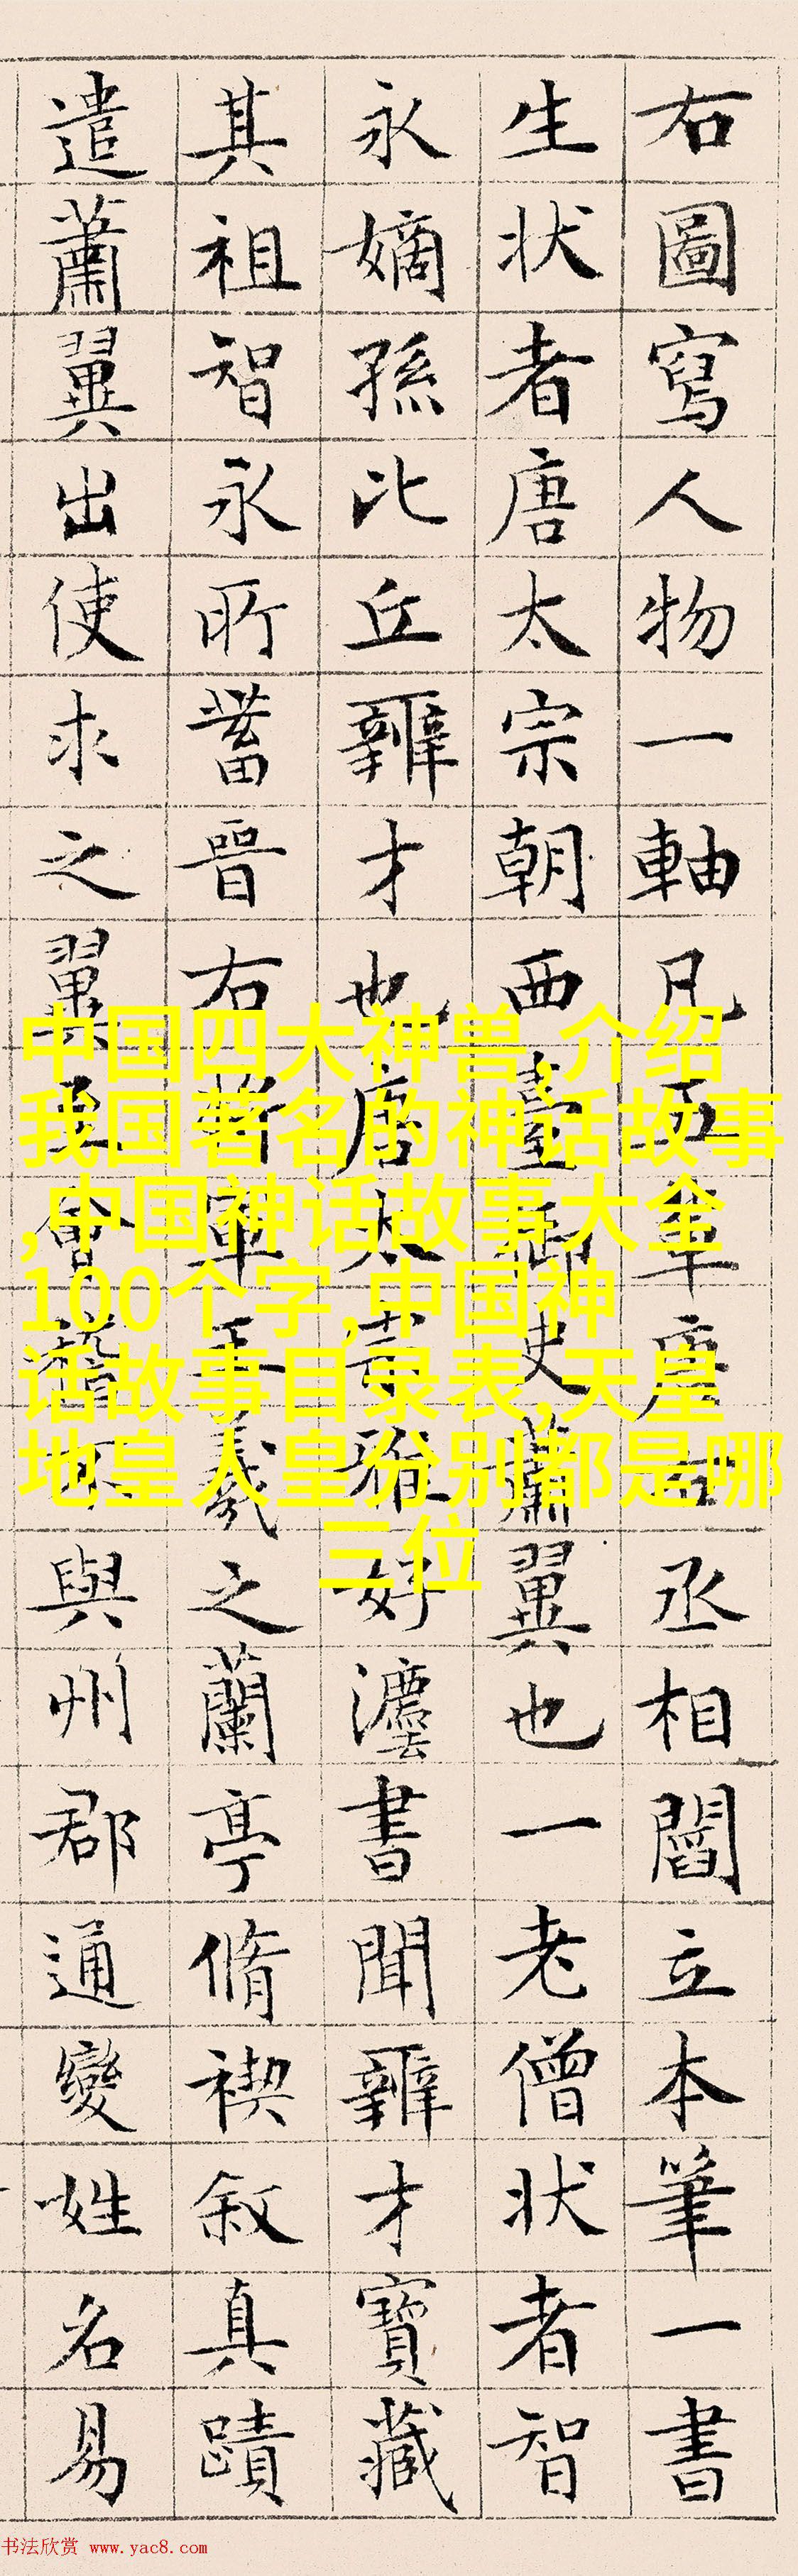 右圖寫人物一軸凡五輩唐右丞相閻立本筆一書
生状者唐太宗朝西臺御史蕭翼也一老僧状者智
永嫡孫比丘辯才也唐太宗雅好灋書聞辯才寶藏
其祖智永所蓄晉右将軍王羲之蘭亭脩禊叙真蹟
遣蕭翼出使求之翼至會稽不與州郡通變姓名易
中国四大神兽,介绍
我国著名的神话故事
,中国神话故事大全
100个字,中国神
话故事目录表,天皇
地皇人皇分别都是哪
三位
书法欣赏 www.yac8.com